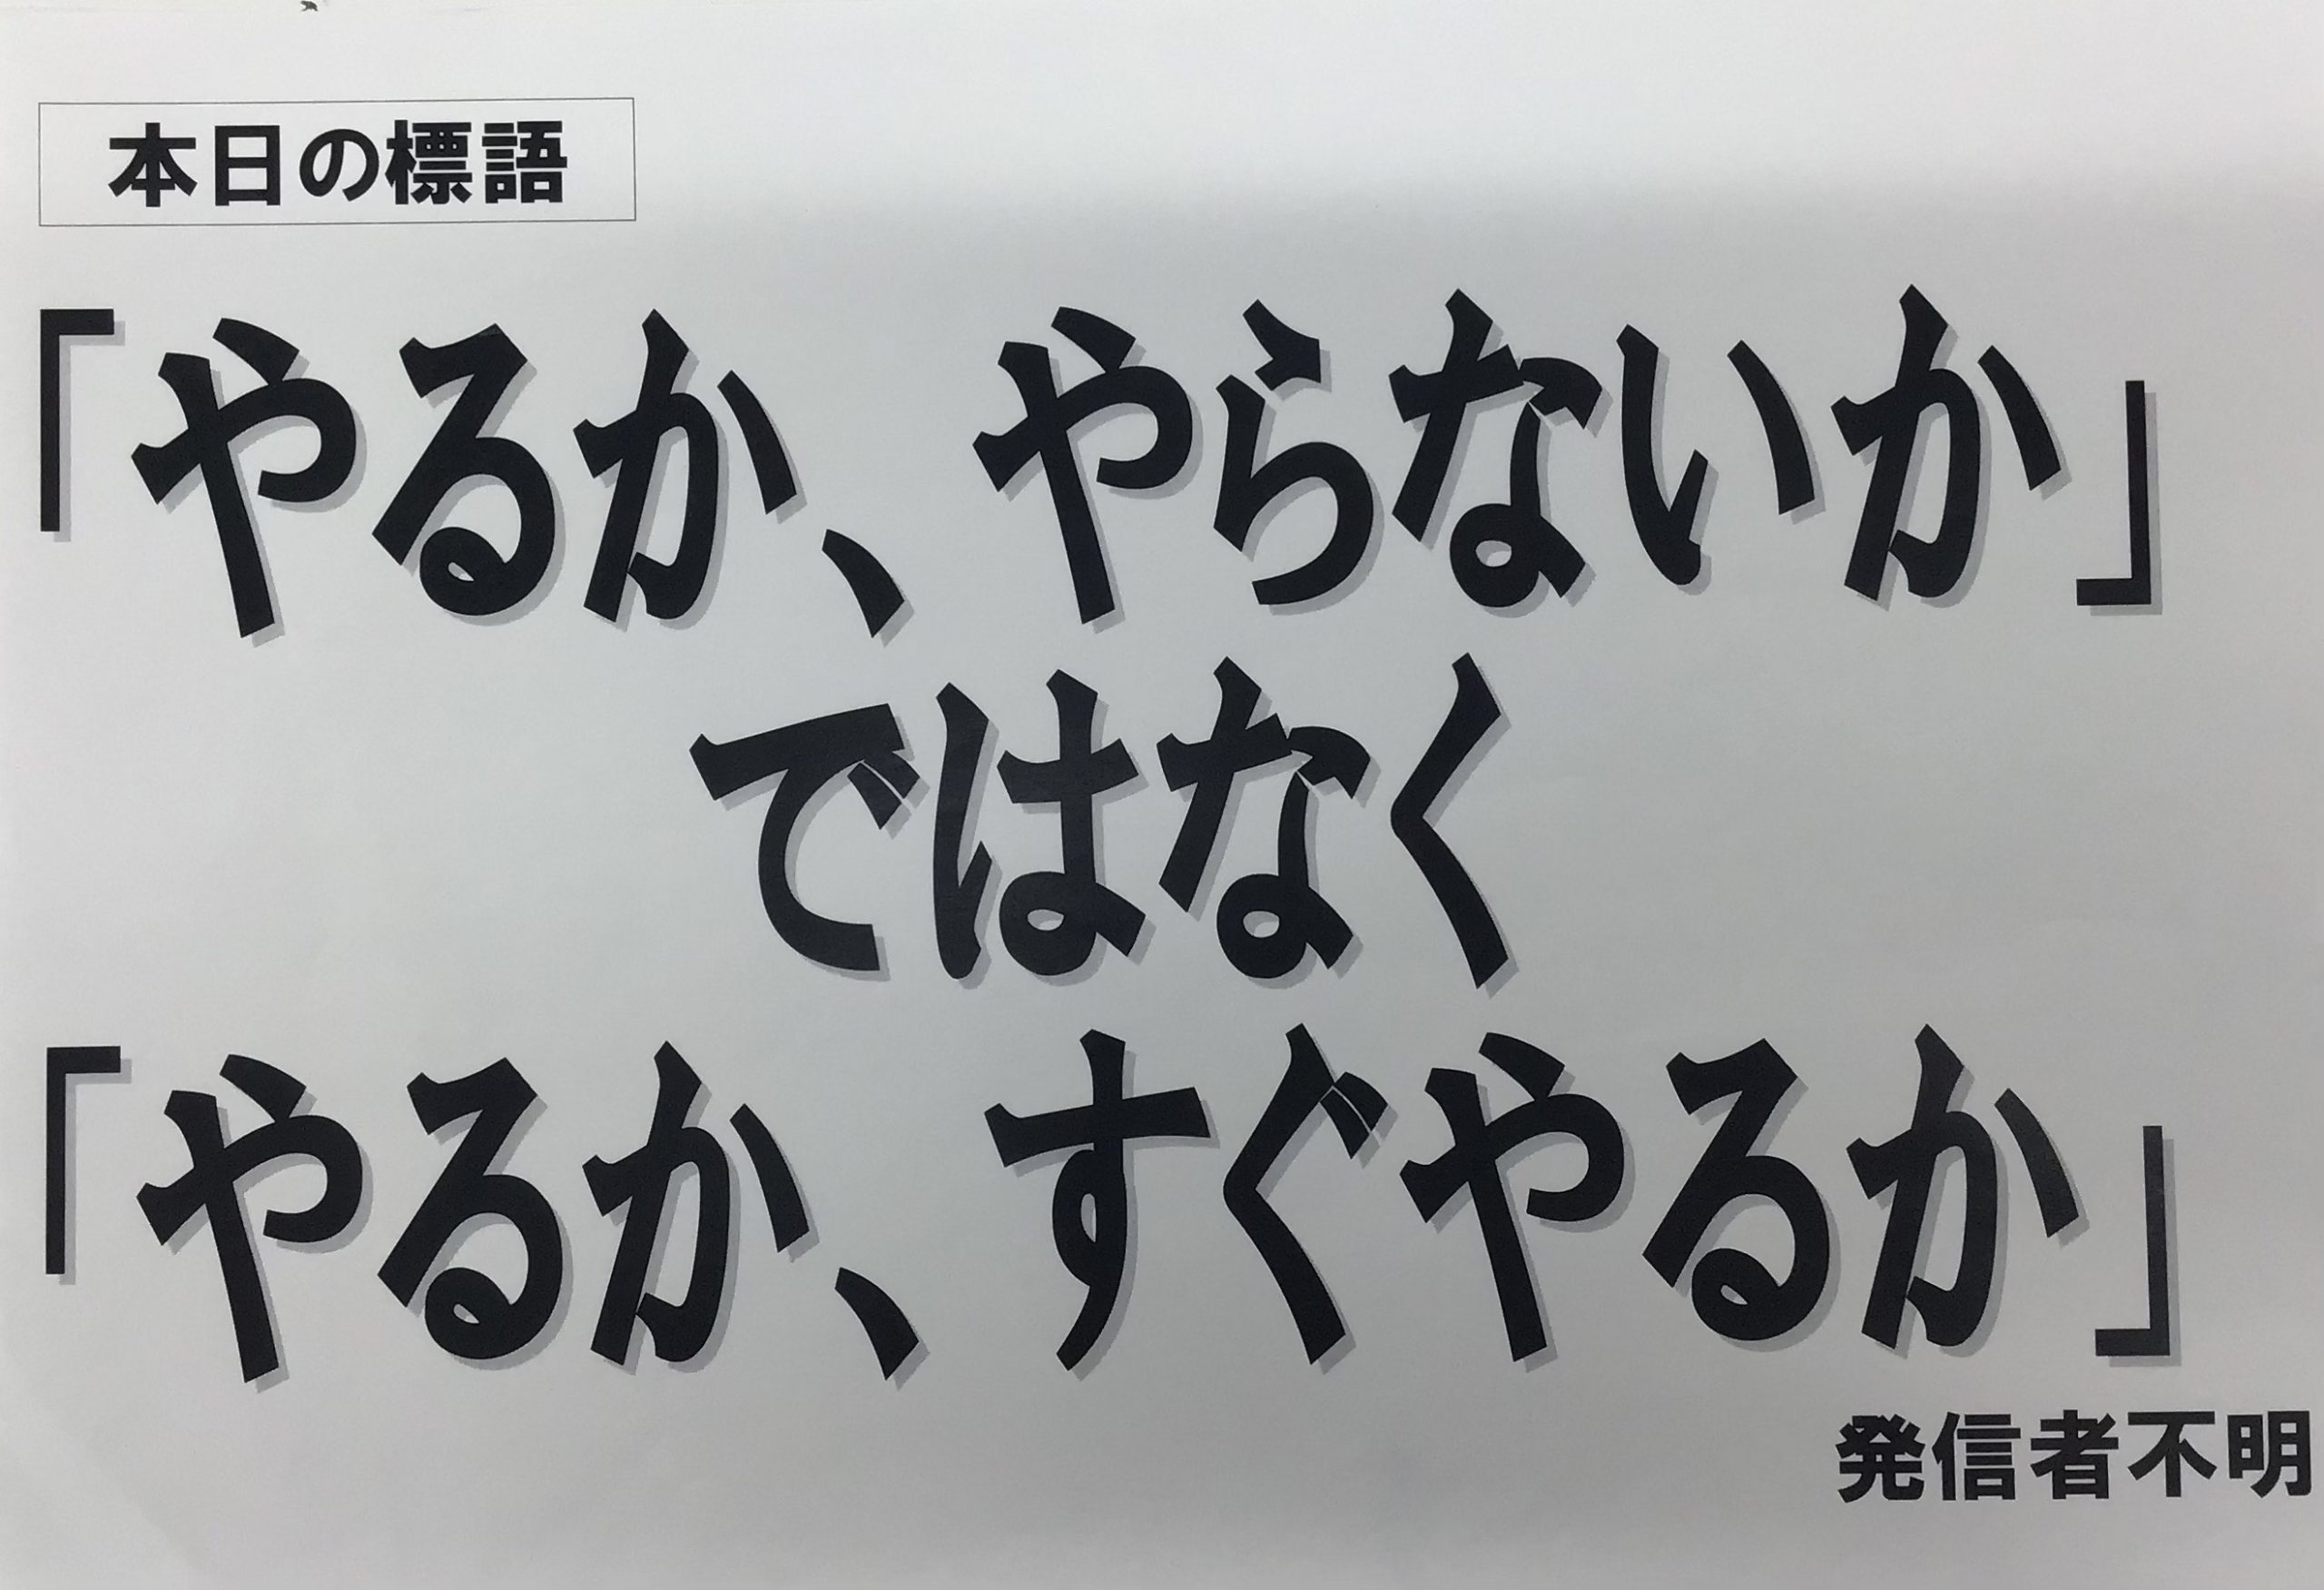 本日の標語
「やるか、やらないか」
ではなく
「やるか、すぐやるか」
発信者不明